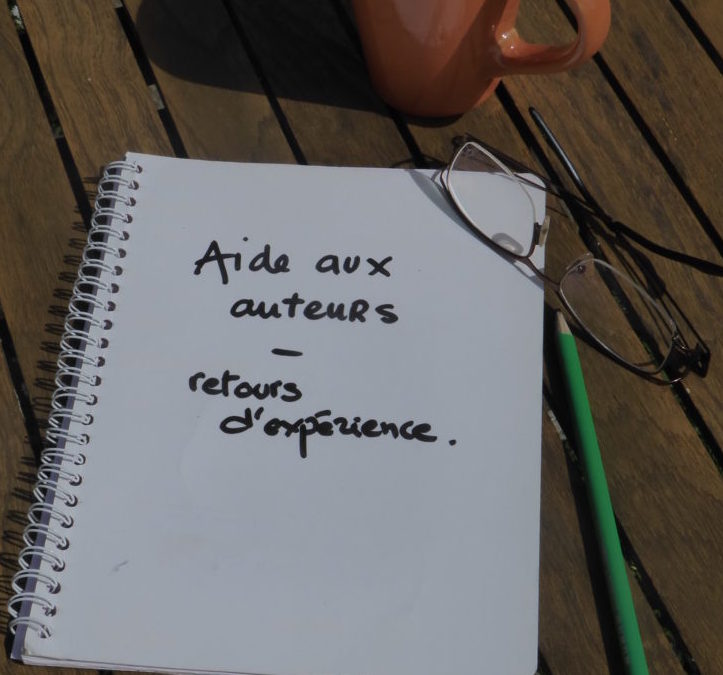 Aide aux
auteurs
—
retours
d'expérience.